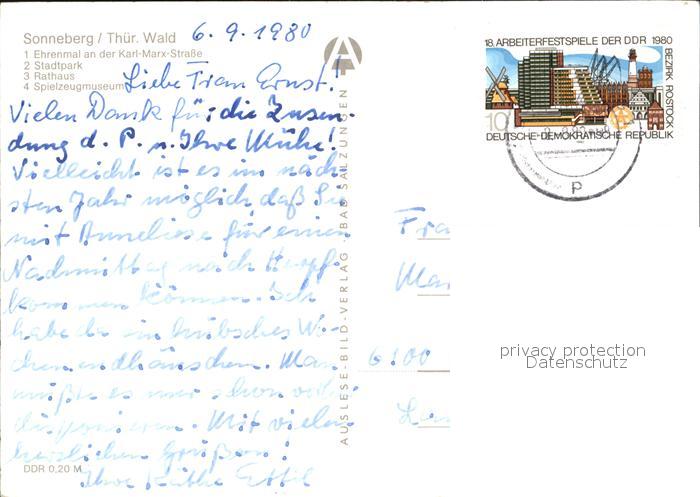 Sonneberg / Thür. Wald 6.9.1980
1 Ehrenmal an der Karl-Marx-Straße
2 Stadtpark
3 Rathaus
4 Spielzeugmuseum
Liebe Frau Ernst!
Vielen Dank für die Zusen-
dung d. P. u. Ihre Mühe!
Vielleicht ist es im näch-
sten Jahr möglich daß Sie
mit Anneliese für einen
Nachmittag nach
kommen können. Ich
habe da ein hübsches Wo-
chenendhäuschen. Man
müßte es nur schon vorher
disponieren. Mit vielen
herzlichen Grüßen!
Ihre Käthe
DDR 0,20 M
AUSLESE-BILD-VERLAG · BAD SALZUNGEN
18. ARBEITERFESTSPIELE DER DDR 1980
BEZIRK ROSTOCK
10
DEUTSCHE DEMOKRATISCHE REPUBLIK
p
Fra
6100
privacy protection
Datenschutz